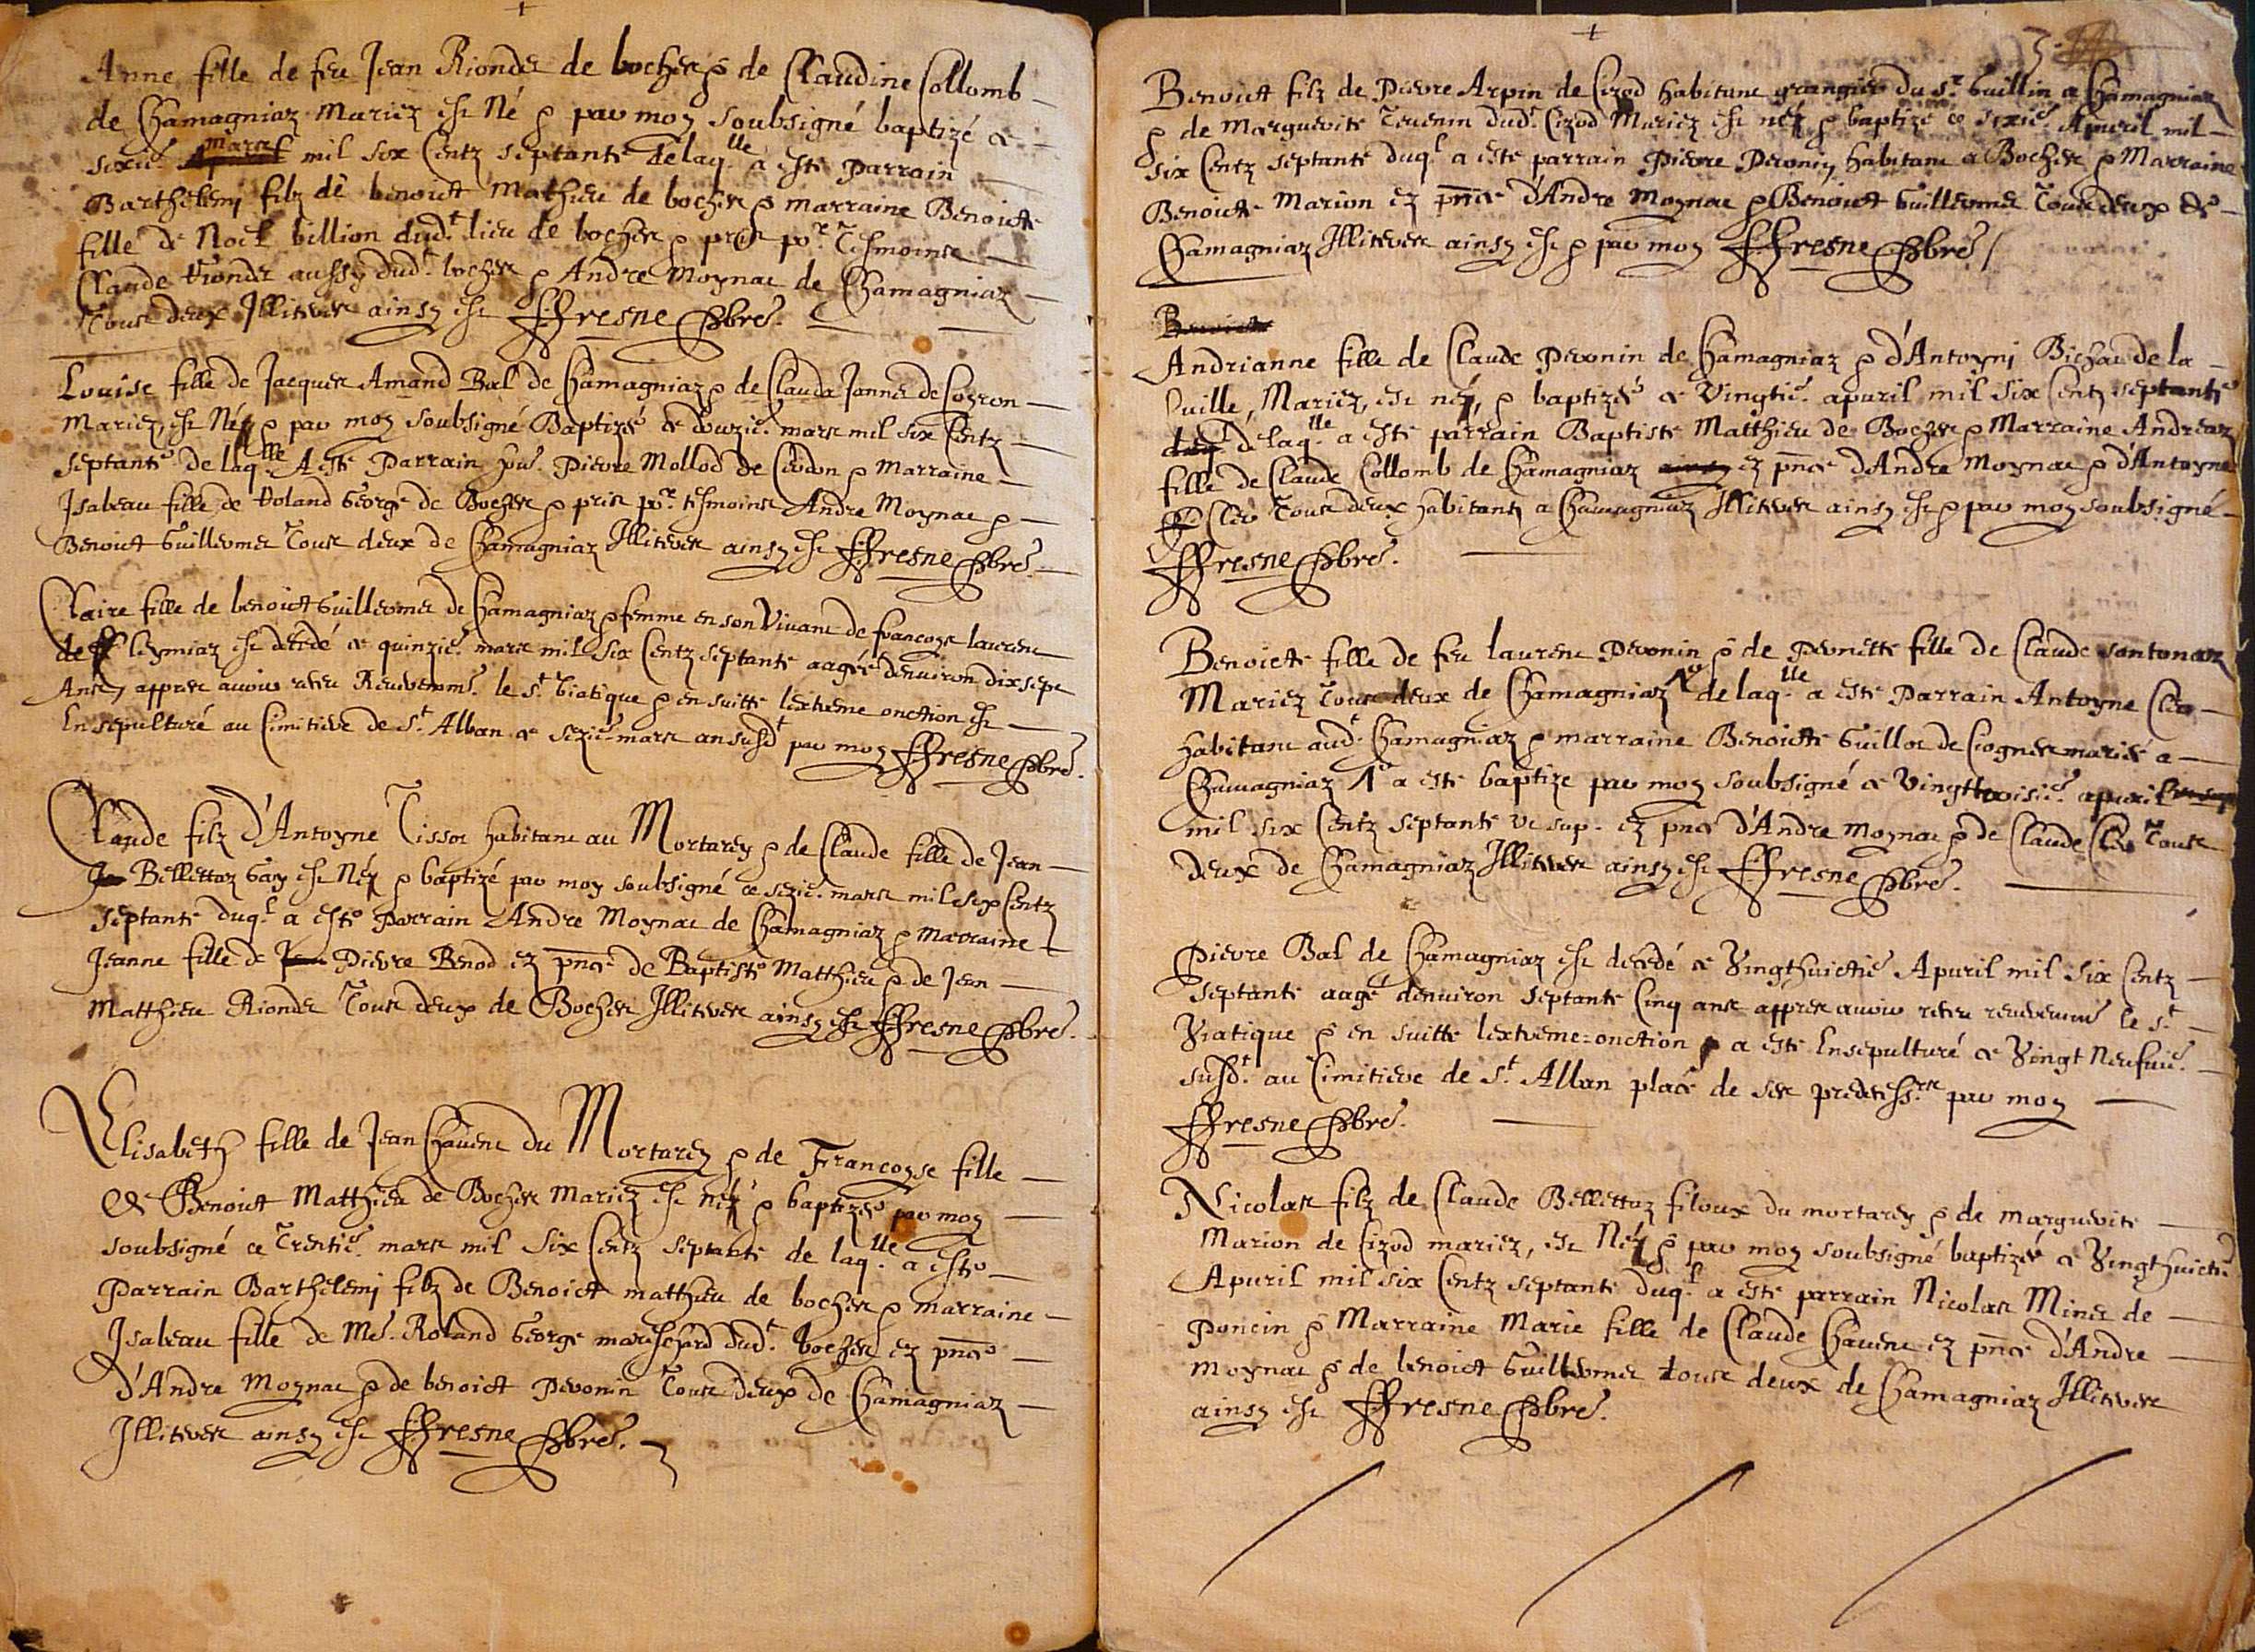 Anne fille de feu Jean Riondet de bocher & de Claudine Collomb
de Chamagniaz Mariez est Né & par moy soubsigné baptizé ce
sixie. mars mil six Centz septante delaqlle a esté Parrain
Barthelemj filz de benoict Mathieu de bocher & marraine Benoicte
fille de Noel billion dudt. lieu de bocher & pris por. Tesmoins
Claude Riondet aussy dudt. bocher & Andre Moynat de Chamagniaz
Tous deux Jlliteres ainsy est ffresne pbre.
Louise fille de Jacques Amand Bal de Chamagniaz & de Clauda Jannet de Coyron
Mariez, est Néz & par moy soubsigné Baptizé ce douzie. mars mil six Centz
septante de laqlle A esté Parrain Pierre Mollod de Cerdon & Marraine
Jsabeau fille de Roland George de Bocher & pris por. tesmoins Andre Moynat &
Benoict Guillermet Tous deux de Chamagniaz Jlliteres ainsy est ffresne pbre.
Claire fille de benoict Guillermet de Chamagniaz & femme en son Vivant de francoys laurent
de leymiaz est decedé ce quinzie. mars mil six Centz septante aagée denuiron dix sept
Ans, appres auoir receu Reueremmt. le st. Viatique & en suitte lextreme onction est
Ensepulturé au Cimitiere de st. Alban ce sezie. mars an susdt par moy ffresne pbre.
Claude filz d'Antoyne Tissot habitant au Mortarey & de Claude fille de Jean
Bellettaz Gay est Néz & baptizé par moy soubsigné ce sezie. mars mil six Centz
septante duql a esté Parrain Andre Moynat de Chamagniaz & Marraine
Jeanne fille de Pierre Benod ez pnce de Baptiste Matthieu & de Jean
Matthieu Riondet Tous deux de Bocher Jlliteres ainsy est ffresne pbre.
Elisabeth fille de Jean Chauent du Mortarey & de Francoyse fille
de Benoict Matthieu de Bocher Mariez est néz & baptizée par moy
soubsigné ce Trentie. mars mil six Centz septante de laqlle a esté
Parrain Barthelemj filz de Benoict matthieu de bocher & marraine
Jsabeau fille de Me. Roland George mareschard dudt. bocher ez pnce
d'Andre Moynat & de benoict Peronin Tous deux de Chamagniaz
Jlliteres ainsy est ffresne pbre.
3
Benoict filz de Pierre Arpin de Cizod habitant grangier du sr. Guillin a Chamagniaz
& de Marguerite Teuenin dudt. Cizod Mariez est néz & baptizé ce sixie. Apuril mil
six Centz septante duql a esté parrain Pierre Peronin habitant a Bocher & Marraine
Benoicte Marion ez pnce d'Andre Moynat & Benoict Guillermet Tous deux de
Chamagniaz Jlliteres ainsy est & par moy ffresne pbre /
Benoicte
Andrianne fille de Claude Peronin de Chamagniaz & d'Antoynj Bichat de la
Ville, Mariez, est néz, & baptizée ce Vingtie. apuril mil six Centz septante
delaqlle a esté parrain Baptiste Matthieu de Bocher & Marraine Andreaz
fille de Claude Collomb de Chamagniaz ez pnce d'Andre Moynat & d'Antoyne
Cler Tous deux habitantz a Chamagniaz Jlliteres ainsy est & par moy soubsigné
ffresne pbre.
Benoicte fille de feu laurent Peronin & de Pernette fille de Claude santonaz
Mariez Tous deux de Chamagniaz de laqlle a esté Parrain Antoyne Cler
habitant audt. Chamagniaz & marraine Benoicte Guillot de Crognes mariée a
Chamagniaz a esté baptize par moy soubsigné ce Vingttroisie. apuril
mil six Centz septante vt sup. ez pnce d'Andre Moynat & de Claude Cler Tous
deux de Chamagniaz Jlliteres ainsy est ffresne pbre.
Pierre Bal de Chamagniaz est decedé ce Vingthuictie Apuril mil six Centz
septante aagé denuiron septante Cinq ans appres auoir receu reueremmt le st.
Viatique & en suitte lextreme=onction a esté Ensepulturé ce Vingt Neufuie.
susdt. au Cimitiere de st. Alban place de ses predecessrs par moy
ffresne pbre.
Nicolas filz de Claude Bellettaz filoux du mortarey & de marguerite
Marion de Cizod mariez, est Néz & par moy soubsigné baptizé ce Vingthuictie
Apuril mil six Centz septante duql. a esté parrain Nicolas Minet de
Poncin & Marraine Marie fille de Claude Chauent ez pnce d'Andre
moynat & de benoict Guillermet tous deux de Chamagniaz Jlliteres
ainsy est ffresne pbre.